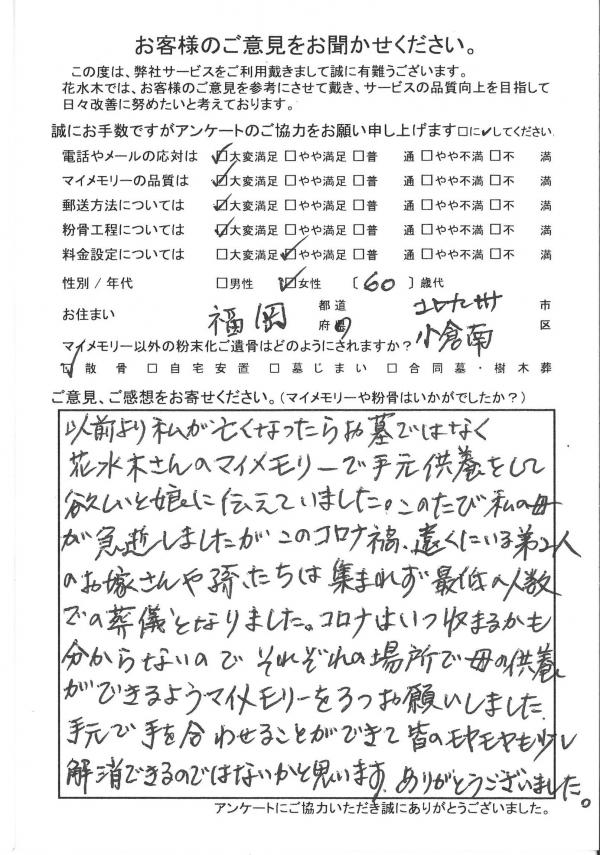 お客様のご意見をお聞かせください。
この度は、弊社サービスをご利用戴きまして誠に有難うございます。
花水木では、お客様のご意見を参考にさせて戴き、サービスの品質向上を目指して
日々改善に努めたいと考えております。
誠にお手数ですがアンケートのご協力をお願い申し上げます□に✓してください
電話やメールの応対は ☑大変満足 □やや満足 □普 通 □やや不満 □不 満
マイメモリーの品質は ☑大変満足 □やや満足 □普 通 □やや不満 □不 満
郵送方法については ☑大変満足 □やや満足 □普 通 □やや不満 □不 満
粉骨工程については ☑大変満足 □やや満足 □普 通 □やや不満 □不 満
料金設定については □大変満足 ☑やや満足 □普 通 □やや不満 □不 満
性別/年代 □男性 ☑女性 〔60〕歳代
お住まい 福岡 都道府県 北九州 市 小倉南 区
マイメモリー以外の粉末化ご遺骨はどのようにされますか?
☑散骨 □自宅安置 □墓じまい □合同墓・樹木葬
ご意見、ご感想をお寄せください。(マイメモリーや粉骨はいかがでしたか?)
以前より私が亡くなったらお墓ではなく
花水木さんのマイメモリーで手元供養をして
欲しいと娘に伝えていました。このたび私の母
が急逝しましたがこのコロナ禍、遠くにいる弟2人
のお嫁さんや孫たちは集まれず最低の人数
での葬儀となりました。コロナはいつ収まるかも
分からないのでそれぞれの場所で母の供養
ができるようマイメモリーを3つお願いしました
手元で手を合わせることができて皆のモヤモヤも少し
解消できるのではないかと思います。ありがとうございました。
アンケートにご協力いただき誠にありがとうございました。